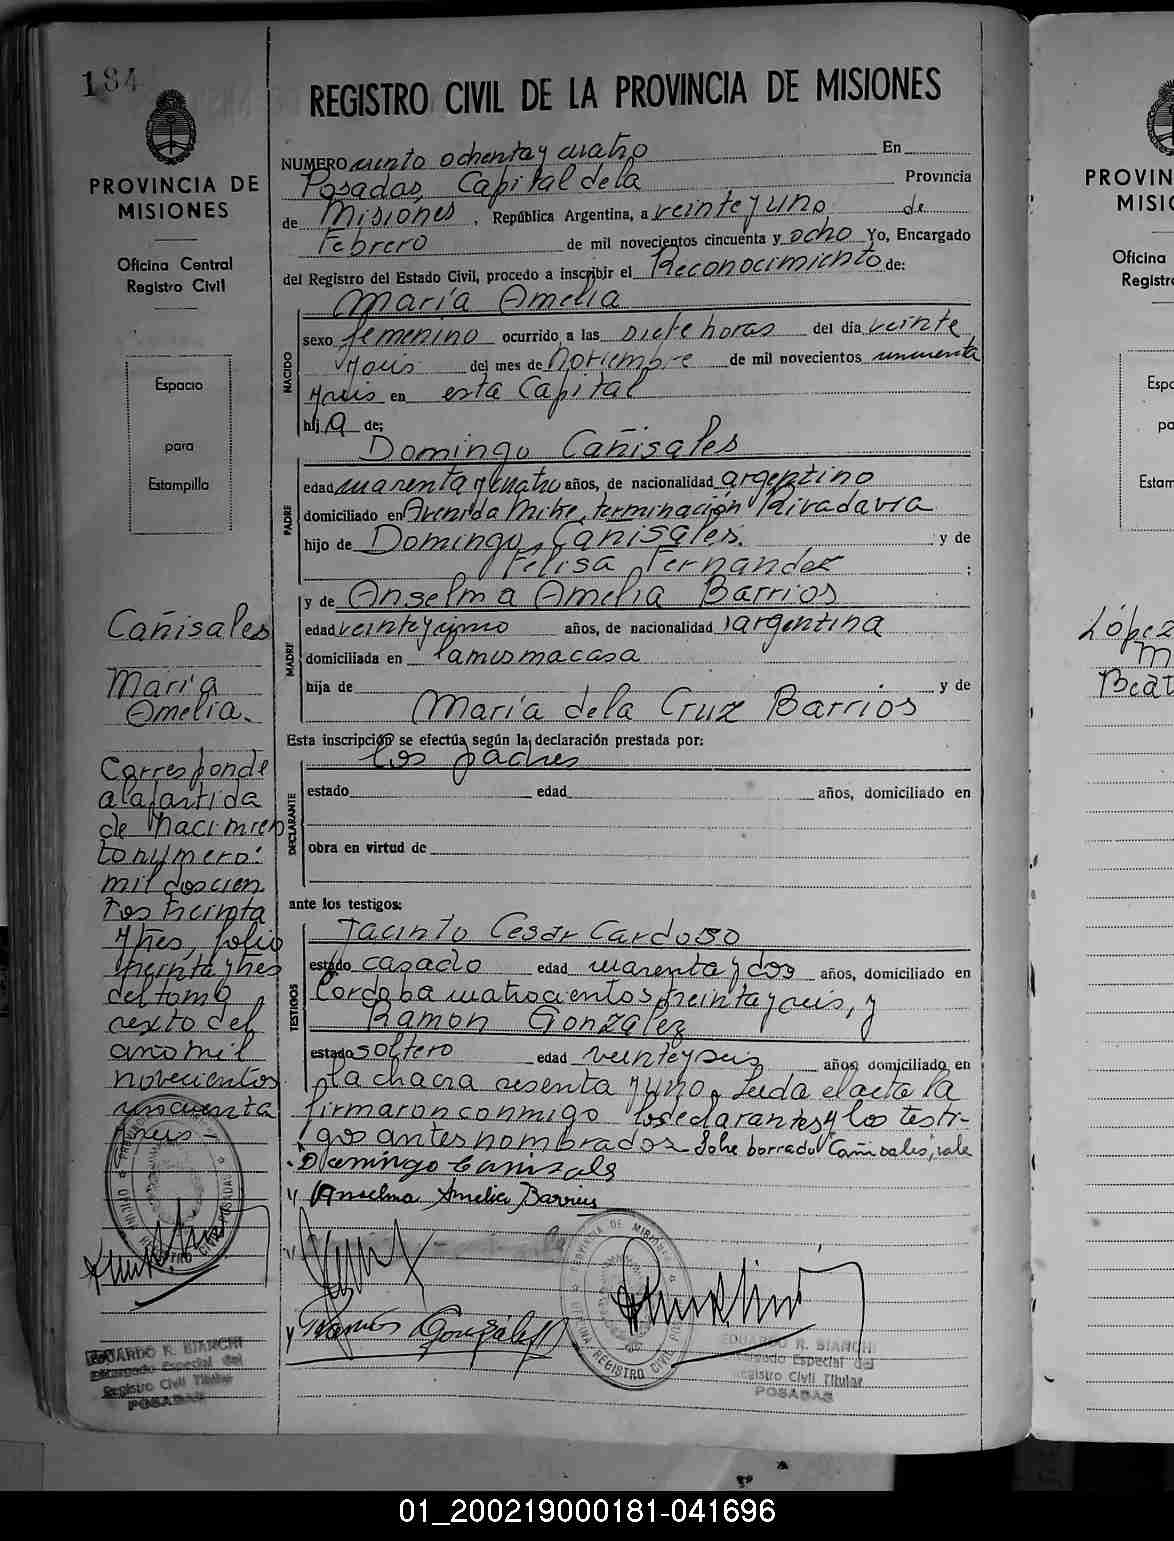 184
PROVINCIA DE
MISIONES
Oficina Central
Registro Civil
Espacio
para
Estampilla
Cañisales
Maria
Amelia.
Corresponde
a la partida
de nacimien
to número:
mil doscien
tos treinta
y tres, folio
treinta y tres
del tomo
sexto del
año mil
novecientos
cincuenta
y seis -
EDUARDO R. BIANCHI
Encargado Especial del
Registro Civil Titular
POSADAS
REGISTRO CIVIL DE LA PROVINCIA DE MISIONES
NUMERO ciento ochenta y cuatro En
Posadas, Capital de la Provincia
de Misiones, República Argentina, a veinte y uno de
Febrero de mil novecientos cincuenta y ocho Yo, Encargado
del Registro del Estado Civil, procedo a inscribir el Reconocimiento de:
Maria Amelia
NACIDO
sexo femenino ocurrido a las siete horas del día veinte
y seis del mes de Noviembre de mil novecientos cincuenta
y seis en esta Capital
hija de:
Domingo Cañisales
PADRE
edad cuarenta y cuatro años, de nacionalidad argentino
domiciliado en Avenida Mitre, terminación Rivadavia
hijo de Domingo Cañisales. y de
Felisa Fernandez ;
y de Anselma Amelia Barrios
MADRE
edad veinte y cinco años, de nacionalidad argentina
domiciliada en la misma casa
hija de y de
Maria de la Cruz Barrios
Esta inscripción se efectúa según la declaración prestada por:
los padres
DECLARANTE
estado edad años, domiciliado en
obra en virtud de
ante los testigos:
Jacinto Cesar Cardozo
TESTIGOS
estado casado edad cuarenta y dos años, domiciliado en
Cordoba cuatrocientos treinta y seis, y
Ramon Gonzalez
estado soltero edad veinte y seis años, domiciliado en
la chacra sesenta y uno. Leida el acta la
firmaron conmigo los declarantes y los testi-
gos antes nombrados - Sobre borrado: Cañisales; vale
Domingo Canisale
Anselma Amelia Barrios
Ramón González
PROVINCIA DE MISIONES
OFICINA REGISTRO CIVIL POSADAS
EDUARDO R. BIANCHI
Encargado Especial del
Registro Civil Titular
POSADAS
PROVIN
MISIO
Oficina
Registr
Espa
pa
Estam
López
M
Beat
01_200219000181-041696